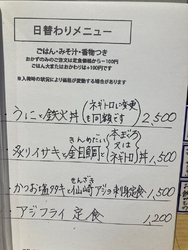 日替わりメニュー
ごはん・みそ汁・香物つき
おかずのみのご注文は定食価格から－100円
ごはん大またはおかわりは＋100円です
※入荷時の状況により価格が変動する場合があります
うにと鉄火丼(ネギトロに変更も同額です) 2,500
炙りイサキと金目鯛(きんめだい)と(本まぐろ又はネギトロ)丼 1,500
かつお塩タタキと仙崎(せんざき)アジの刺身定食 1,500
アジフライ定食 1,200